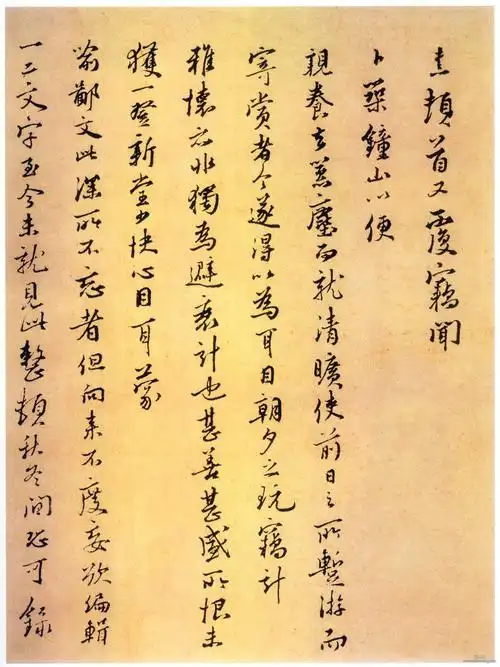 熹頓首又覆竊聞
卜築鐘山以便
親養去囂塵而就清曠使前日之所暫游而
寄賞者今遂得以為耳目朝夕之玩竊計
雅懷亦非獨為避衰計也甚善甚盛所恨未
獲一登新堂少快心目耳蒙
喻鄙文此深所不忘者但向來不度妄欲編輯
一二文字至今未就見此整頓秋冬間恐可錄